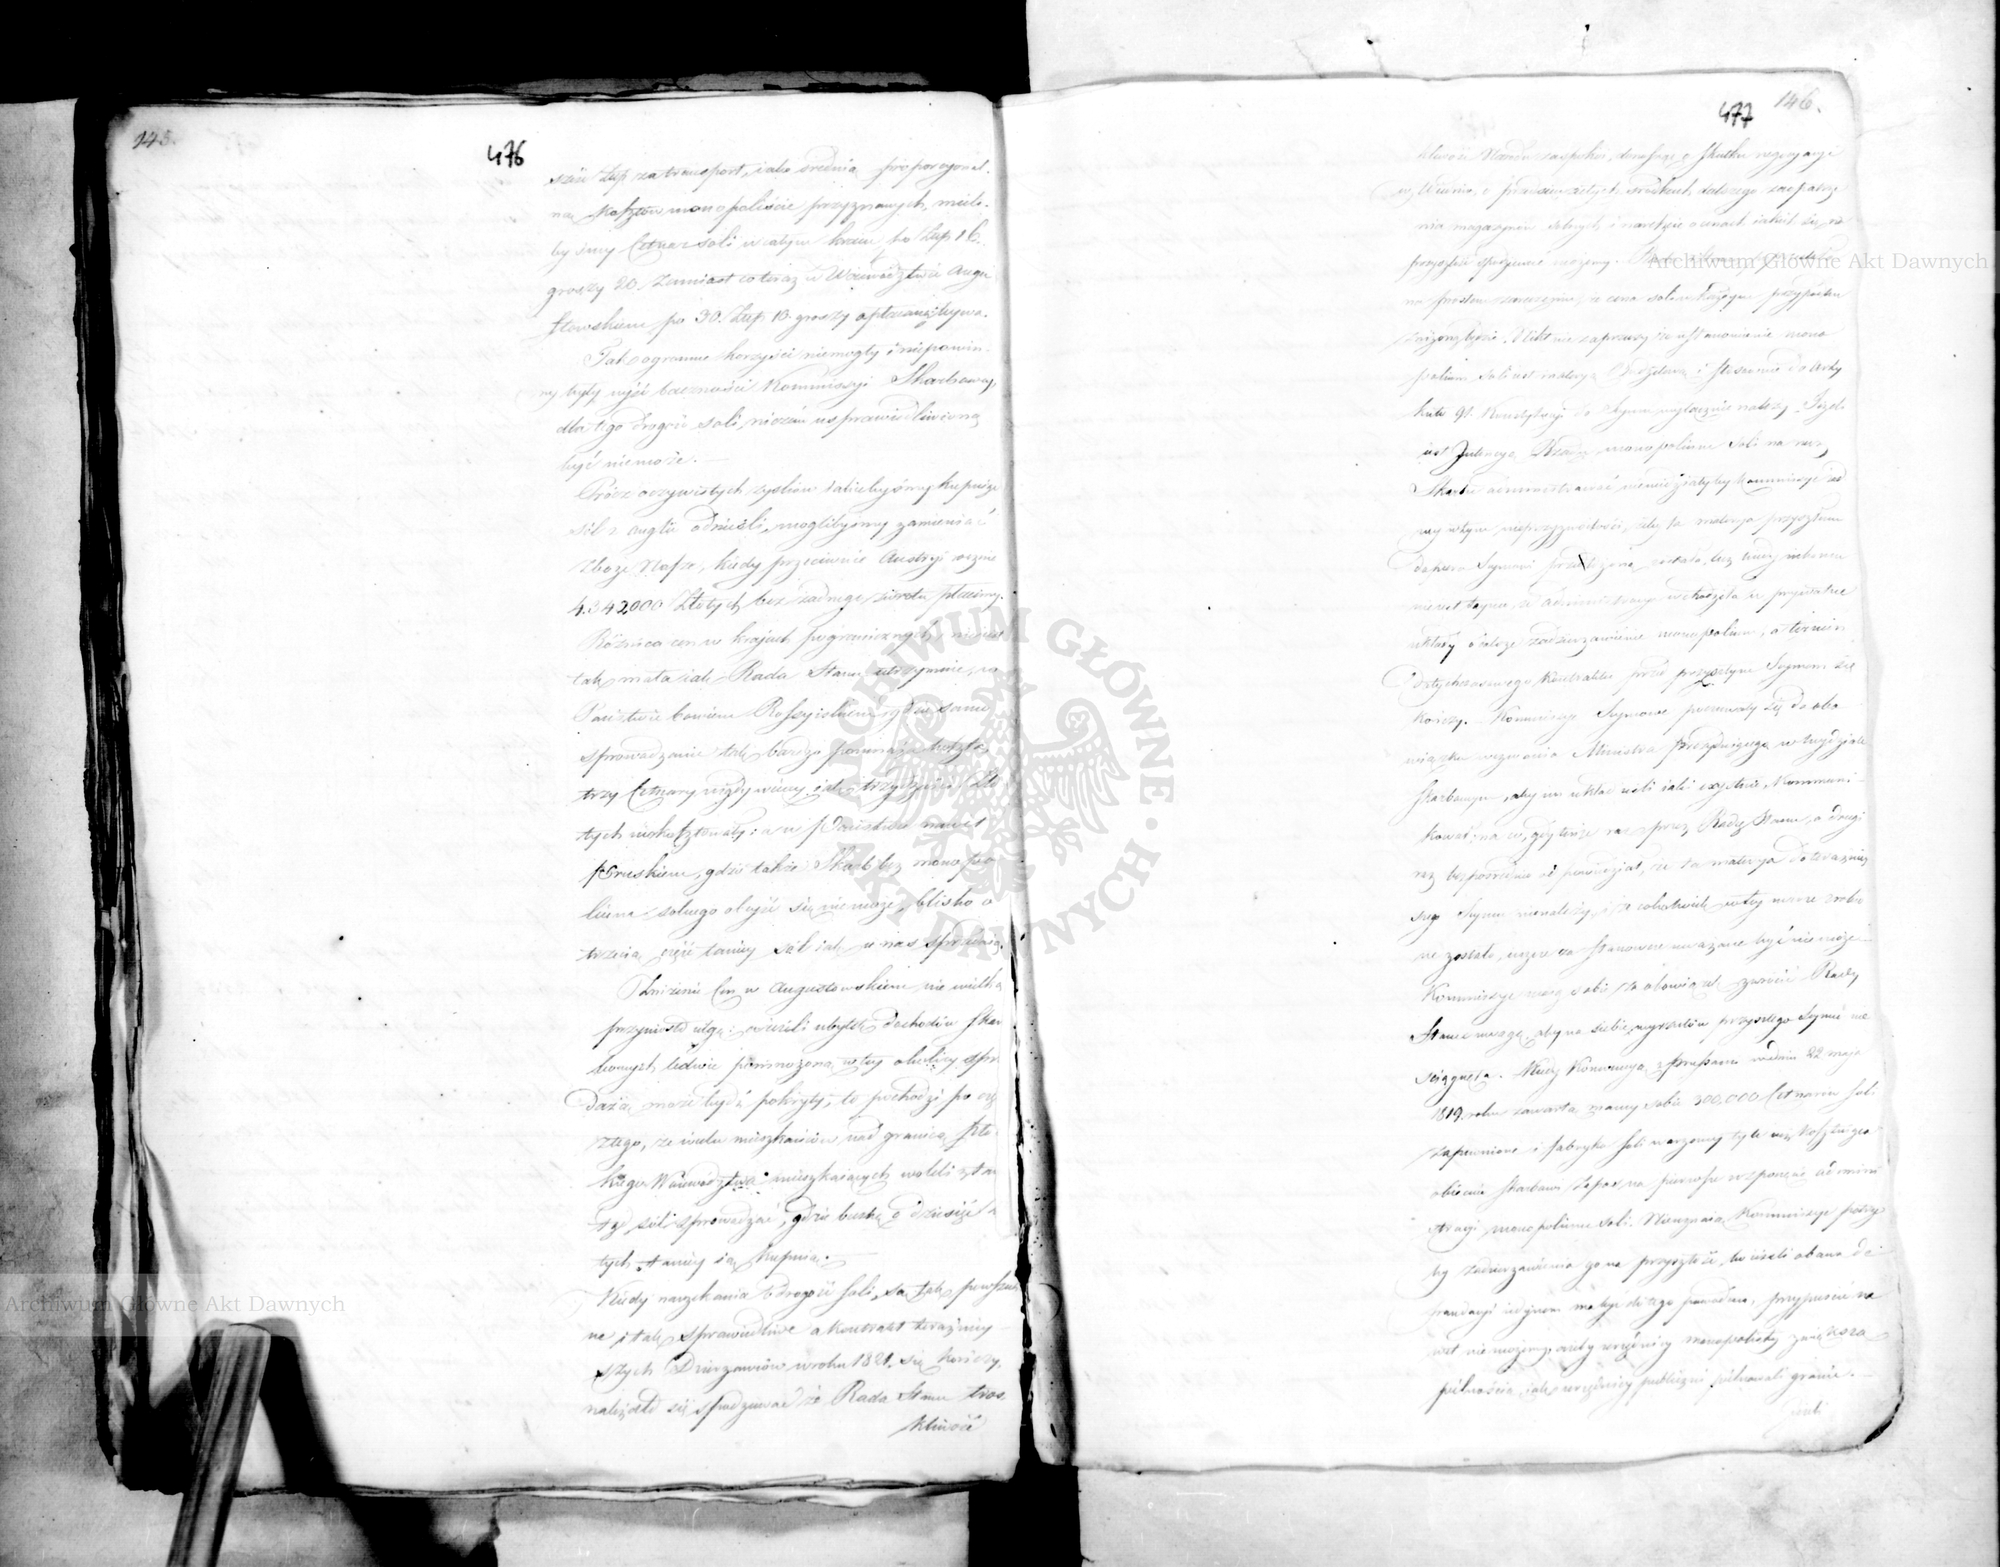 145.
476
sześć Złłp za transport, iako średnią proporcyonal-
ną kosztów monopoliście przyznawych, mieli-
byśmy Cetnar soli w całym kraiu po Złłp 16.
groszy 20. zamiast co teraz w Woiewództwie Augu
stowskiem po 30. Złłp 10. groszy opłacaną bywa.
Tak ogromne korzyści niemogły i niepowin-
ny były uyść baczności Kommissyi Skarbowey,
dla tego drogość soli, niczem usprawiedliwioną
być niemoże. —
Prócz oczywistych zysków iakie byśmy kupuiąc
sól z Anglii odnieśli, moglibyśmy zamieniać
zboże Nasze, kiedy przeciwnie Austryi rocznie
4.342000 Złotych bez żadnego zwrotu płacimy.
Różnica cen w kraiach pogranicznych, nie iest
tak mała iak Rada Stanu utrzymuie, w
Państwie bowiem Rossyiskiem, gdzie samo
sprowadzenie tak bardzo pomnaża koszta,
trzy Cetnary nigdy więcey iak trzydzieści Zło
tych niekosztowały: a w Państwie nawet
Pruskiem, gdzie także Skarb bez monopo
lium solnego obeyść się niemoże, blisko o
trzecią część taniey sól iak u nas sprzedaią.
Zniżenie Cen w Augustowskiem nie wielką
przyniosło ulgę: a ieżeli ubytek dochodów skar
bowych ledwie pomnożoną w tey okolicy sprze
dażą może bydź pokryty, to pochodzi po czę
ści z tego, że wielu mieszkańców nad granicą Pło-
ckiego Woiewództwa mieszkaiących woleli z tam
tąd sól sprowadzać, gdzie beczkę o dziesięć zło
tych taniey się kupuie. —
Kiedy narzekania o drogość soli, są tak powszech
ne i tak sprawiedliwe a kontrakt teraźniey
szych Dzierżawców w roku 1821. się kończy,
należało się spodziewać że Rada Stanu tros-
kliwość
477
146.
kliwość Narodu zaspokoi, donosząc o skutku negocyacyi
w Wiedniu, o przedsięwziętych środkach dalszego zaopatrze
nia magazynów solnych i narescie o cenach iakich się na
przyszłość spodziewać możemy.
na prostem zaręczeniu, że cena soli w każdym przypadku
zniżoną będzie. Nikt nie zaprzeczy że ustanowienie mono
polium soli iest materyą Budżetową i stosownie do Arty
kułu 91. Konstytucyi do Seymu wyłącznie należy. Jeżeli
iest Intencyą Rządu, monopolium soli na rzecz
Skarbu administrować niewidziałyby Kommissye żad
ney w tym nieprzyzwoitości, żeby ta materya przyszłemu
dopiero Seymowi przełożoną została, lecz kiedy
nie iest tayno, że Administracya wchodziła w prywatne
układy o dalsze zadzierżawienie monopolium, a termin
Dotychczasowego Kontraktu przed przyszłym Seymem się
kończy. — Kommissye Seymowe poczuwały się do obo
wiązku wezwania Ministra prezyduiącego w Wydziale
Skarbowym, aby im układ ieśli iaki exystuie, Kommuni-
kował; na co, gdy tenże raz przez Radę Stanu, a drugi
raz bezpośrednio odpowiedział, że ta materya do teraźniey
szego Seymu nienależy, i że cokolwiek w tey mierze zrobio
ne zostało, ieszcze za stanowcze uważane być nie może. —
Kommissye maią sobie za obowiązek zwrócić Rady
Stanu uwagę, aby na siebie wyrzutów przyszłego Seymu nie
ściągnęła. Kiedy Konwencyą z Prusami w dniu 22 maja
1819. roku zawartą mamy sobie 300,000 Cetnarów Soli
zapewnione i fabryka soli warzoney tyle
obiecuie Skarbowi zapas na pierwsze rozpoczęcie admini
stracyi monopolium soli. Nieuznaią Kommissye potrze
by zadzierżawienia go na przyszłość, bo ieżeli obawa de
fraudacyi iedynem ma być do tego powodem, przypuścić na
wet nie możemy, ażeby urzędnicy monopolisty większą
pilnością iak urzędnicy publiczni pilnowali granic. —
jeżeli
Archiwum Główne Akt Dawnych
Archiwum Główne Akt Dawnych
ARCHIWUM GŁÓWNE AKT DAWNYCH